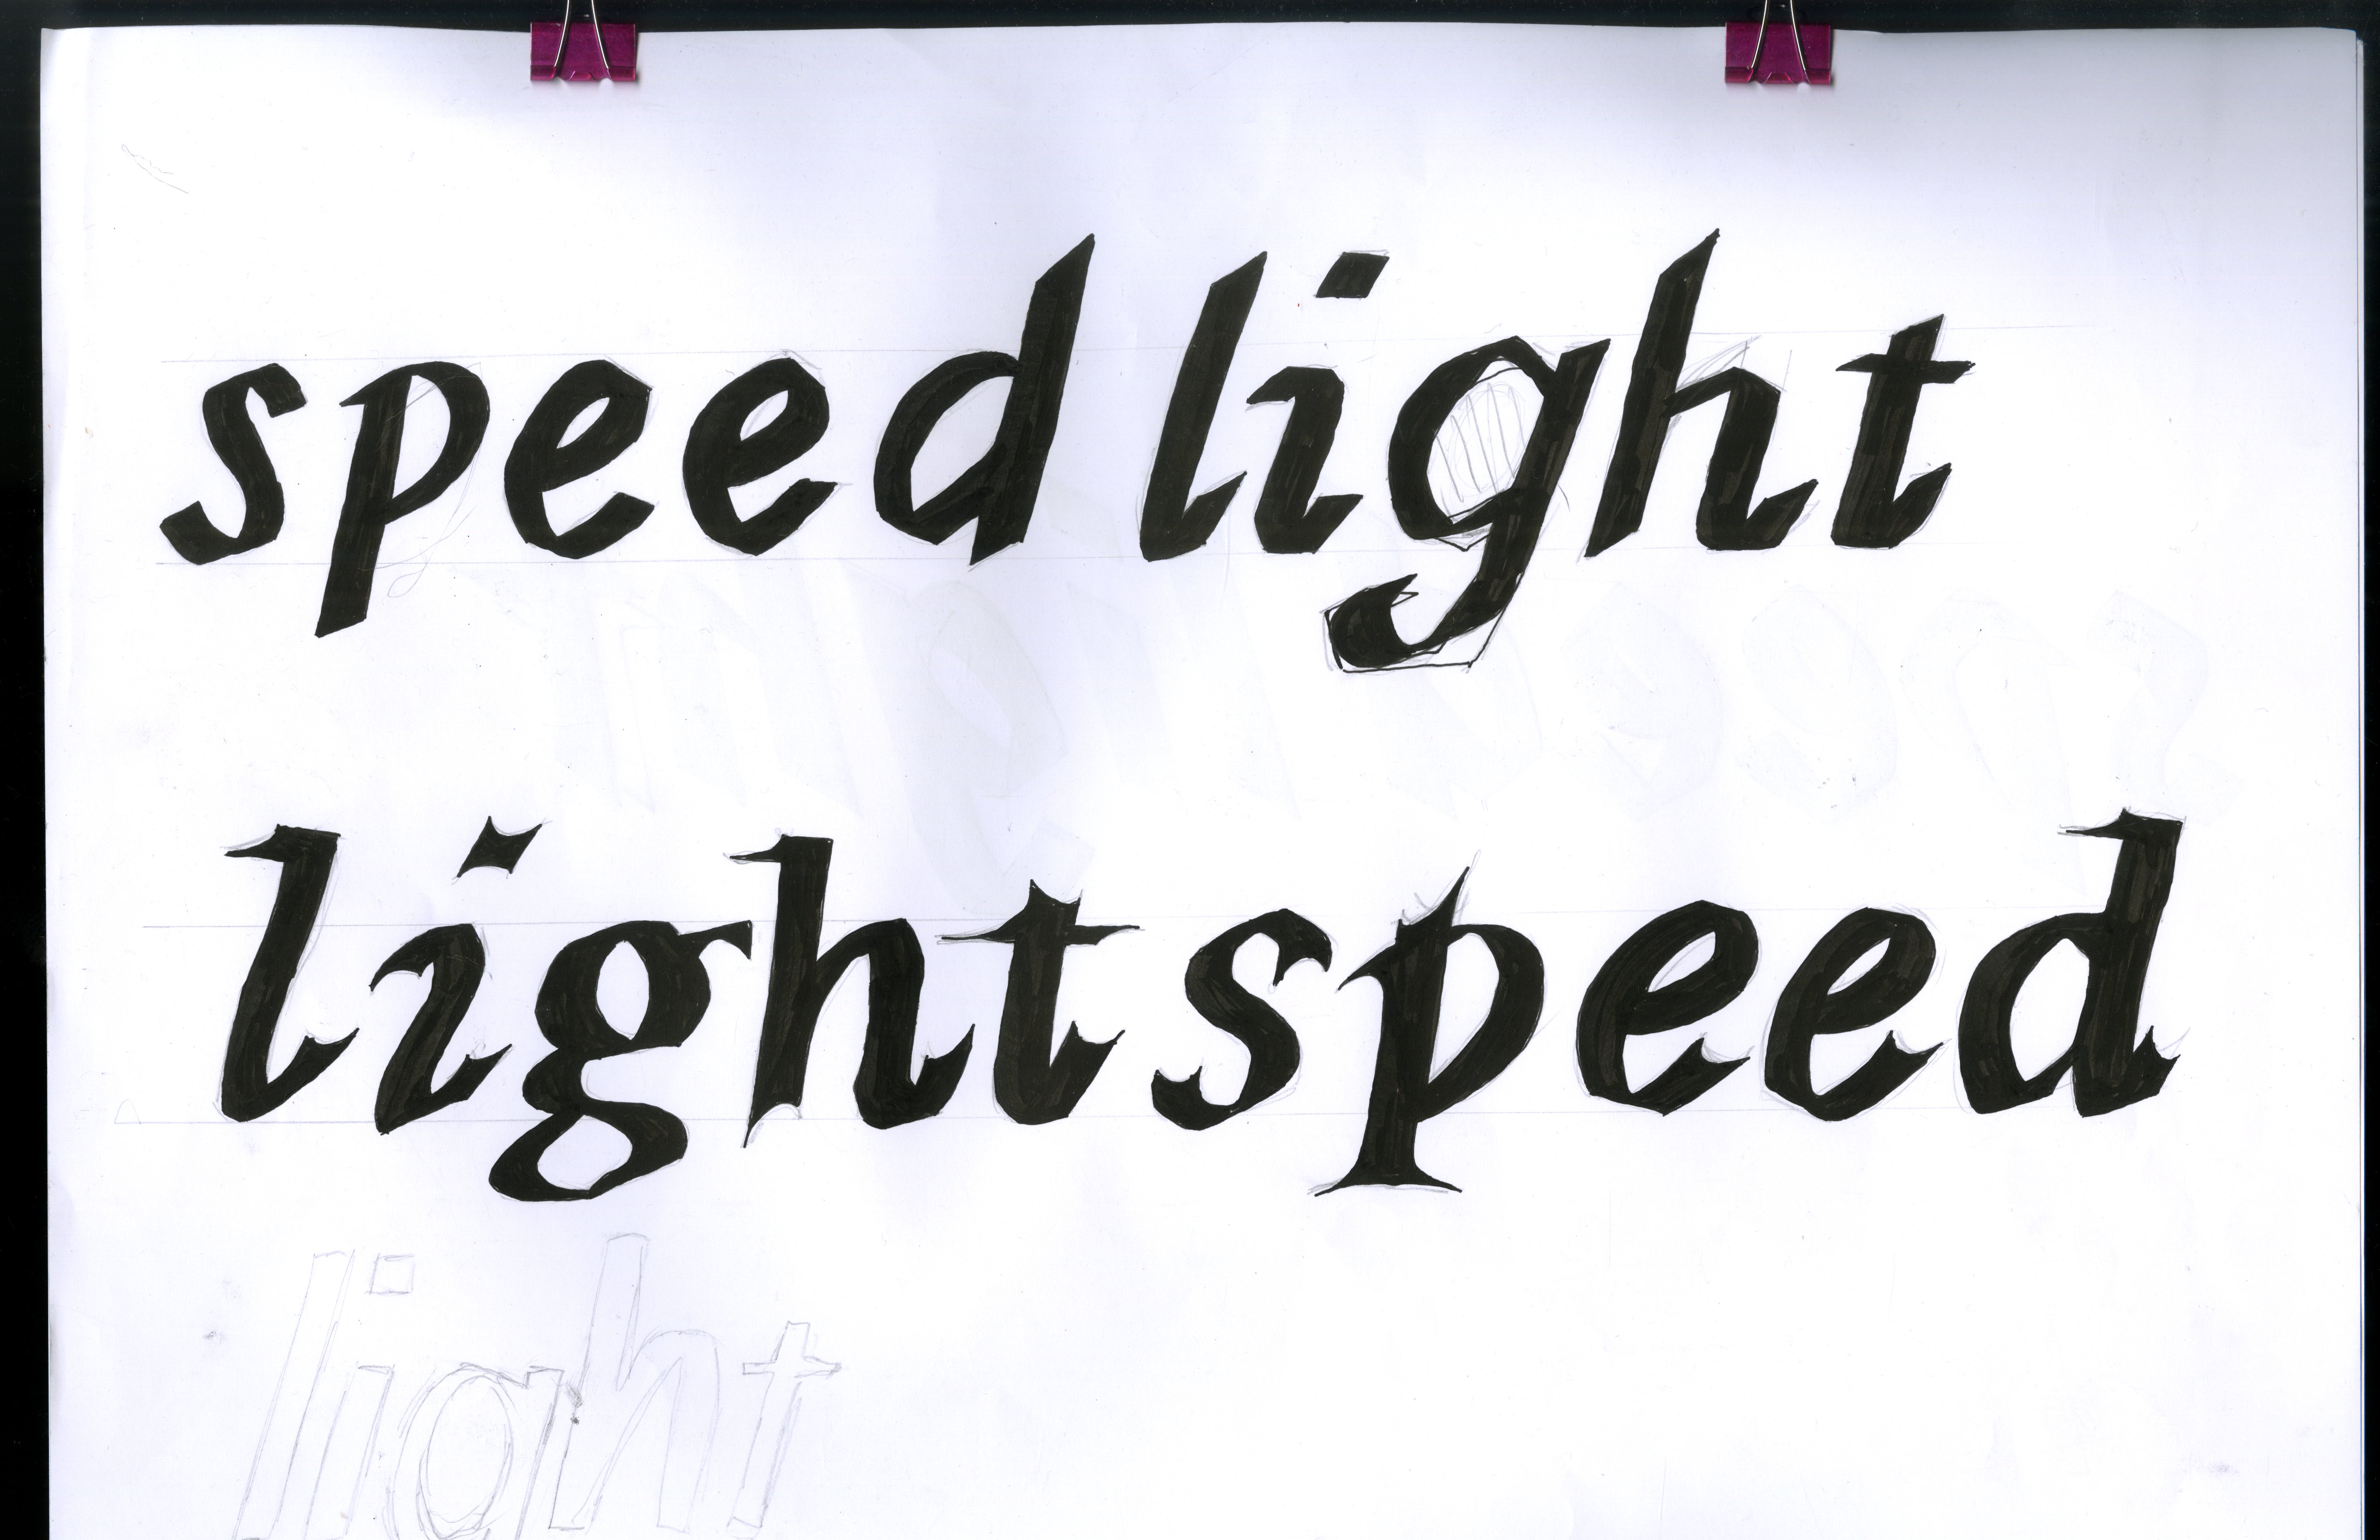 speed light
light speed
light